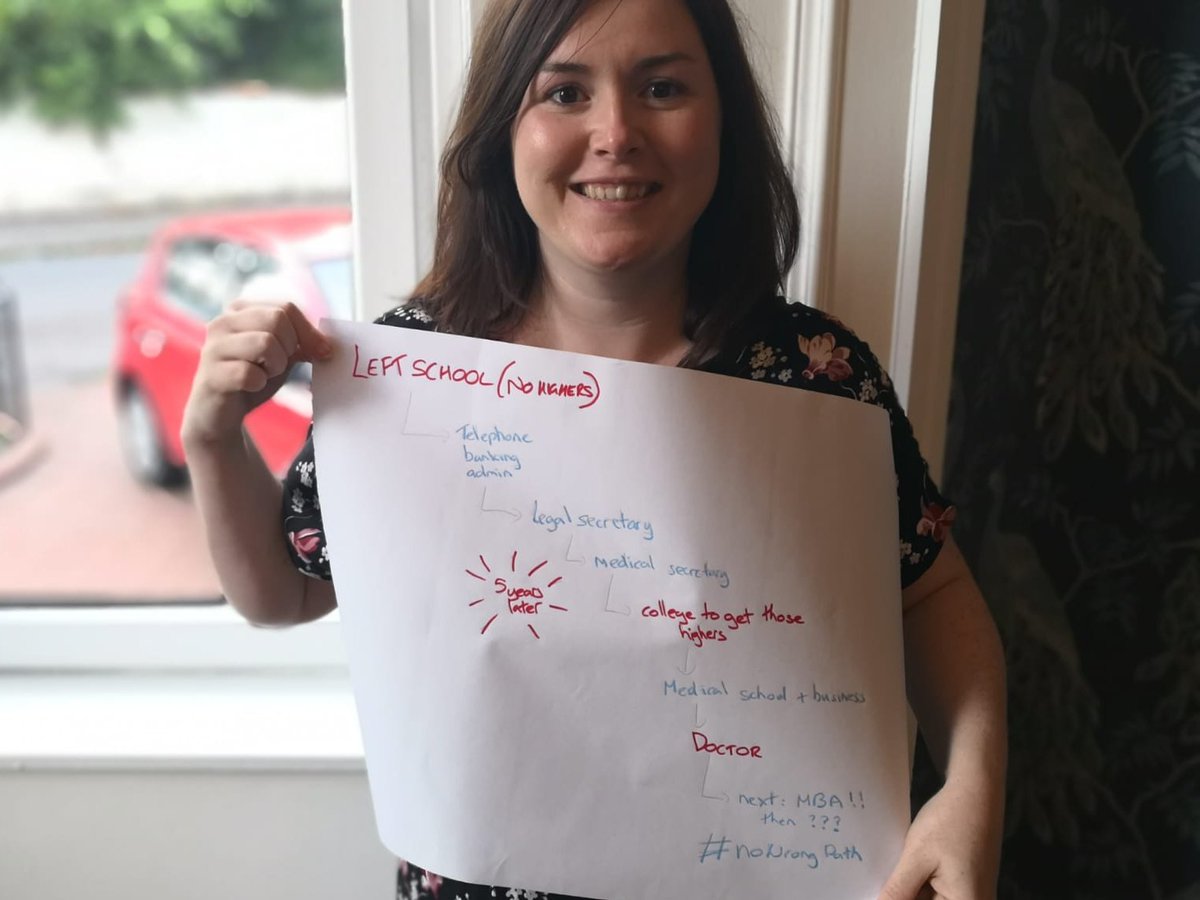 LEFT SCHOOL (NO HIGHERS)
Telephone
banking
admin
Legal secretary
Medical secretary
5 years
later
college to get those
highers
Medical school + business
DOCTOR
next: MBA!!
then ???
#noWrongPath